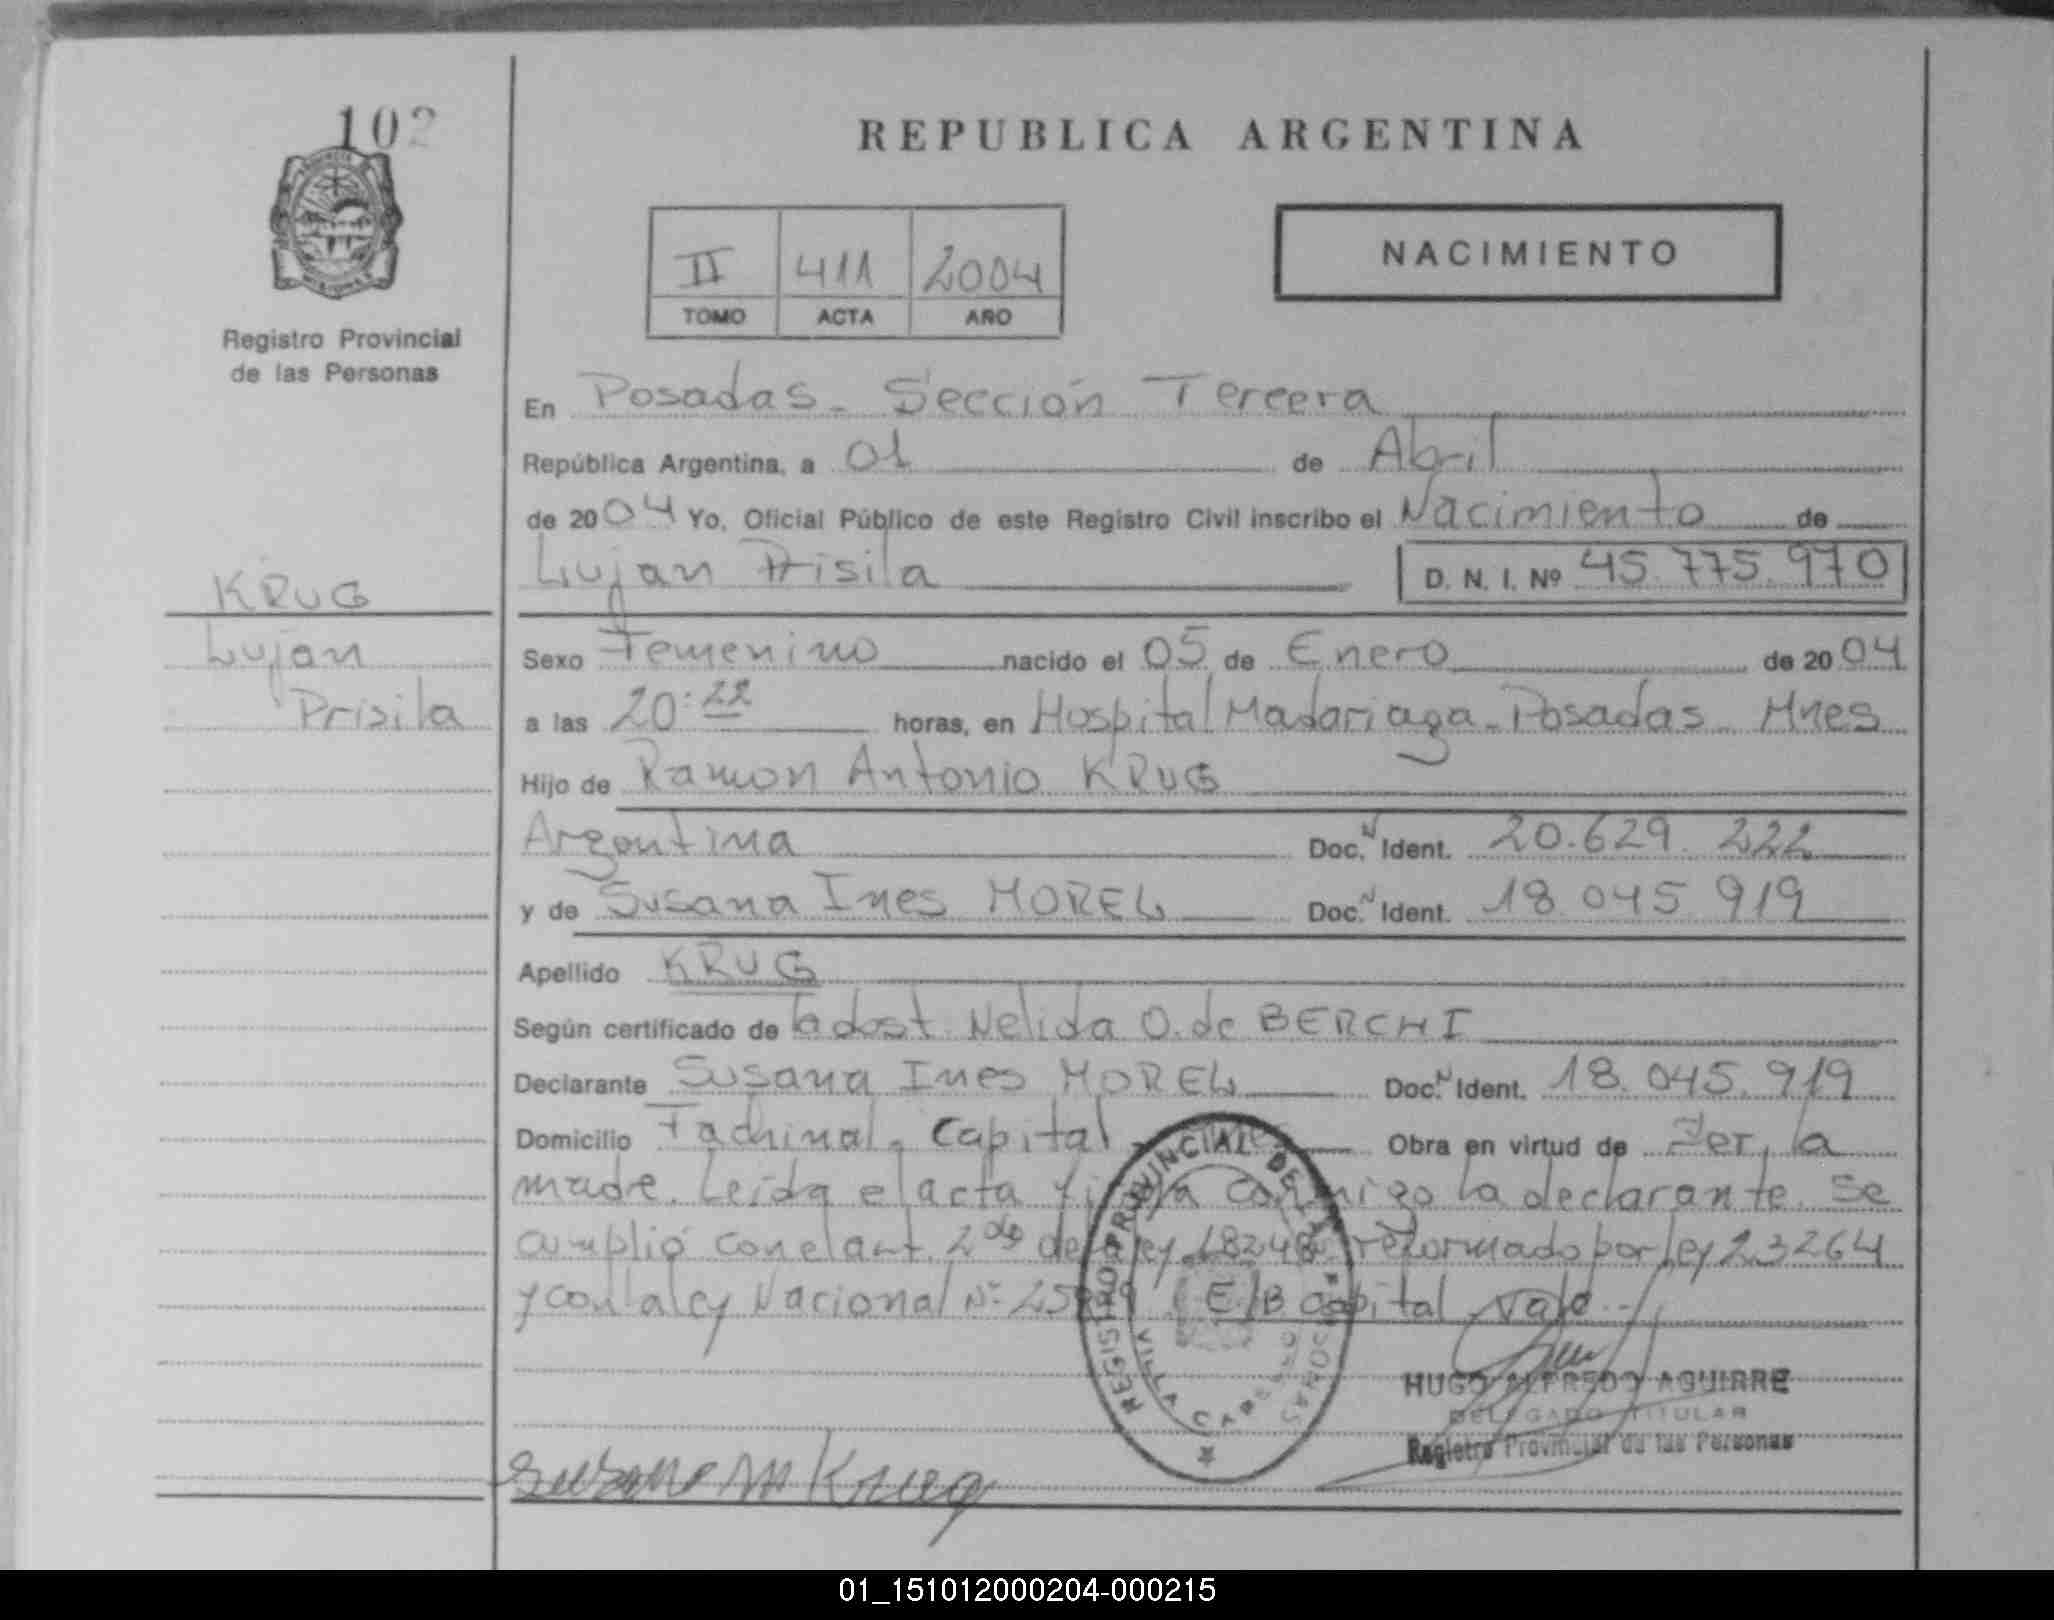 102
REPUBLICA ARGENTINA
II 411 2004
TOMO ACTA AÑO
NACIMIENTO
Registro Provincial
de las Personas
En Posadas - Sección Tercera
República Argentina, a 01 de Abril
de 2004 Yo, Oficial Público de este Registro Civil inscribo el Nacimiento de
KRUG
Lujan Prisila D. N. I. Nº 45.775.970
Lujan
Sexo Femenino nacido el 05 de Enero de 2004
Prisila
a las 20:22 horas, en Hospital Madariaga - Posadas - Mnes
Hijo de Ramon Antonio KRUG
Argentina Doc. N Ident. 20.629.222
y de Susana Ines MOREL Doc. N Ident. 18.045.919
Apellido KRUG
Según certificado de la obst. Nelida O. de BERCHI
Declarante Susana Ines MOREL Doc. N Ident. 18.045.919
Domicilio Fachinal - Capital Obra en virtud de Ser la
madre. Leída el acta firma conmigo la declarante. Se
cumplió con el art. 2do de la ley 18248 reformado por ley 23264
y con la ley Nacional Nº E/B Capital Vale.-
REGISTRO PROVINCIAL DE LAS PERSONAS
VILLA CABELLO
HUGO ALFREDO AGUIRRE
DELEGADO TITULAR
Registro Provincial de las Personas
Susana M Krug
01_151012000204-000215